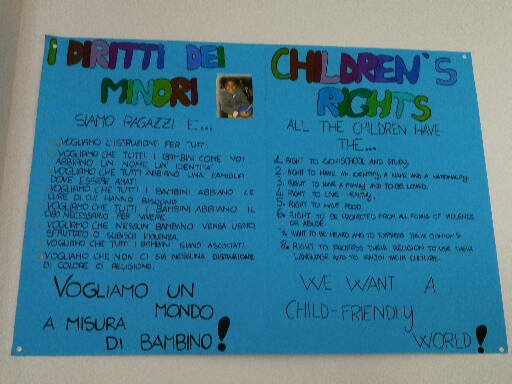 I DIRITTI DEI
MINORI
SIAMO RAGAZZI E...
VOGLIAMO L'ISTRUZIONE PER TUTTI
VOGLIAMO CHE TUTTI I BAMBINI COME NOI
ABBIANO UN NOME UN' IDENTITÀ
VOGLIAMO CHE TUTTI ABBIANO UNA FAMIGLIA
DOVE ESSERE AMATI
VOGLIAMO CHE TUTTI I BAMBINI ABBIANO LE
CURE DI CUI HANNO BISOGNO
VOGLIAMO CHE TUTTI I BAMBINI ABBIANO IL
CIBO NECESSARIO PER VIVERE
VOGLIAMO CHE NESSUN BAMBINO VENGA USATO,
SFRUTTATO O SUBISCA VIOLENZA.
VOGLIAMO CHE TUTTI I BAMBINI SIANO ASCOLTATI.
VOGLIAMO CHE NON CI SIA NESSUNA DISTINZIONE
DI COLORE O RELIGIONE.
VOGLIAMO UN
MONDO
A MISURA
DI BAMBINO!
CHILDREN'S
RIGHTS
ALL THE CHILDREN HAVE
THE...
1. RIGHT TO GO SCHOOL AND STUDY.
2. RIGHT TO HAVE AN IDENTITY, A NAME AND A NATIONALITY.
3. RIGHT TO HAVE A FAMILY AND TO BE LOVED.
4. RIGHT TO LIVE HEALTHY.
5. RIGHT TO HAVE FOOD.
6. RIGHT TO BE PROTECTED FROM ALL FORMS OF VIOLENCE
OR ABUSE.
7. RIGHT TO BE HEARD AND TO EXPRESS THEIR OPINIONS.
8. RIGHT TO PROFESS THEIR RELIGION TO USE THEIR
LANGUAGE AND TO ENJOY THEIR CULTURE.
WE WANT A
CHILD-FRIENDLY
WORLD!